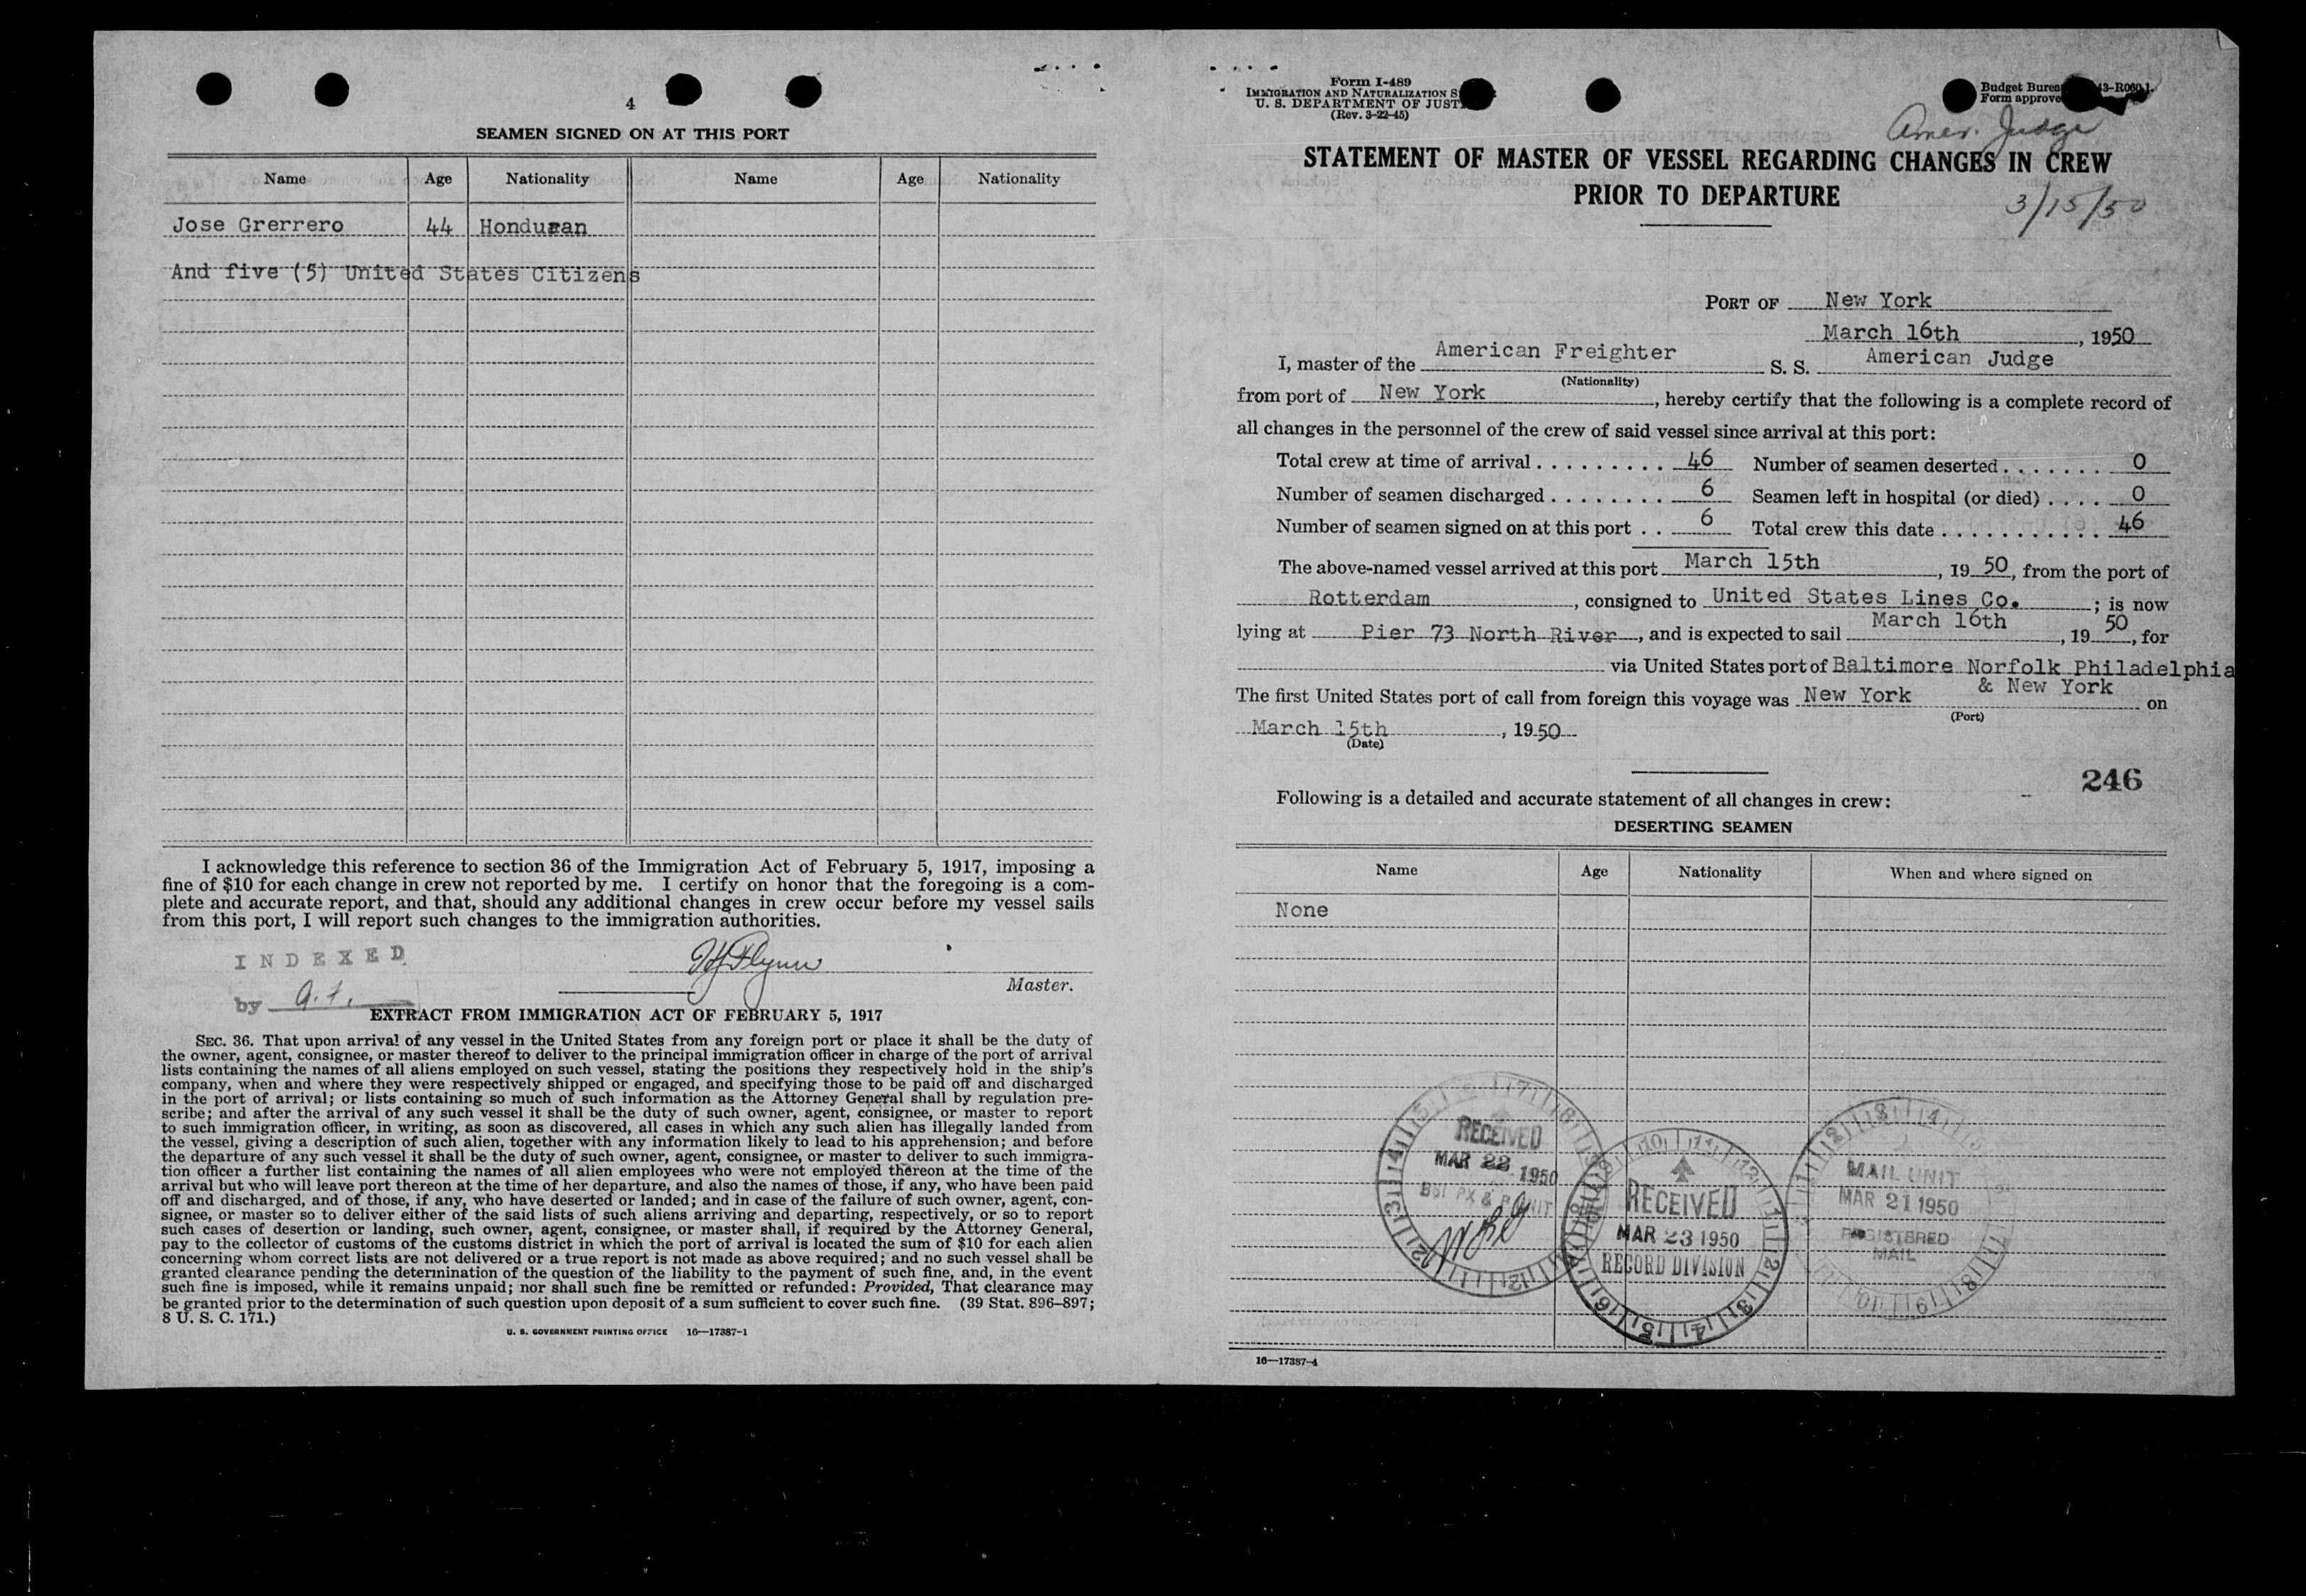 4
SEAMEN SIGNED ON AT THIS PORT
Name Age Nationality Name Age Nationality
Jose Grerrero 44 Honduran
And five (5) United States Citizens
I acknowledge this reference to section 36 of the Immigration Act of February 5, 1917, imposing a
fine of $10 for each change in crew not reported by me. I certify on honor that the foregoing is a com-
plete and accurate report, and that, should any additional changes in crew occur before my vessel sails
from this port, I will report such changes to the immigration authorities.
INDEXED
by
Flynn
Master.
EXTRACT FROM IMMIGRATION ACT OF FEBRUARY 5, 1917
SEC. 36. That upon arrival of any vessel in the United States from any foreign port or place it shall be the duty of
the owner, agent, consignee, or master thereof to deliver to the principal immigration officer in charge of the port of arrival
lists containing the names of all aliens employed on such vessel, stating the positions they respectively hold in the ship's
company, when and where they were respectively shipped or engaged, and specifying those to be paid off and discharged
in the port of arrival; or lists containing so much of such information as the Attorney General shall by regulation pre-
scribe; and after the arrival of any such vessel it shall be the duty of such owner, agent, consignee, or master to report
to such immigration officer, in writing, as soon as discovered, all cases in which any such alien has illegally landed from
the vessel, giving a description of such alien, together with any information likely to lead to his apprehension; and before
the departure of any such vessel it shall be the duty of such owner, agent, consignee, or master to deliver to such immigra-
tion officer a further list containing the names of all alien employees who were not employed thereon at the time of the
arrival but who will leave port thereon at the time of her departure, and also the names of those, if any, who have been paid
off and discharged, and of those, if any, who have deserted or landed; and in case of the failure of such owner, agent, con-
signee, or master so to deliver either of the said lists of such aliens arriving and departing, respectively, or so to report
such cases of desertion or landing, such owner, agent, consignee, or master shall, if required by the Attorney General,
pay to the collector of customs of the customs district in which the port of arrival is located the sum of $10 for each alien
concerning whom correct lists are not delivered or a true report is not made as above required; and no such vessel shall be
granted clearance pending the determination of the question of the liability to the payment of such fine, and, in the event
such fine is imposed, while it remains unpaid; nor shall such fine be remitted or refunded: Provided, That clearance may
be granted prior to the determination of such question upon deposit of a sum sufficient to cover such fine. (39 Stat. 896–897;
8 U. S. C. 171.)
U. S. GOVERNMENT PRINTING OFFICE 16—17387-1
Form I-489
IMMIGRATION AND NATURALIZATION
U. S. DEPARTMENT OF JUST
(Rev. 3-22-45)
Budget Burea
Form approve
Amer. Judge
STATEMENT OF MASTER OF VESSEL REGARDING CHANGES IN CREW
PRIOR TO DEPARTURE
3/15/50
PORT OF New York
March 16th, 1950
I, master of the American Freighter S. S. American Judge
(Nationality)
from port of New York, hereby certify that the following is a complete record of
all changes in the personnel of the crew of said vessel since arrival at this port:
Total crew at time of arrival 46 Number of seamen deserted 0
Number of seamen discharged 6 Seamen left in hospital (or died) 0
Number of seamen signed on at this port 6 Total crew this date 46
The above-named vessel arrived at this port March 15th, 19 50, from the port of
Rotterdam, consigned to United States Lines Co.; is now
lying at Pier 73 North River, and is expected to sail March 16th, 19 50, for
via United States port of Baltimore Norfolk Philadelphia
& New York
The first United States port of call from foreign this voyage was New York on
(Port)
March 15th, 19 50
(Date)
246
Following is a detailed and accurate statement of all changes in crew:
DESERTING SEAMEN
Name Age Nationality When and where signed on
None
RECEIVED
MAR 22 1950
RECEIVED
MAR 23 1950
RECORD DIVISION
MAIL UNIT
MAR 21 1950
REGISTERED
MAIL
16—17387-4